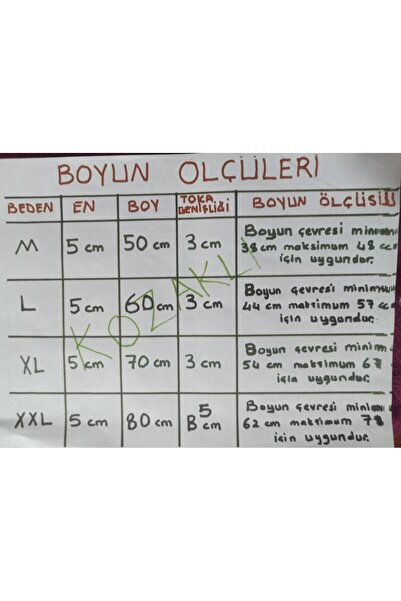 BOYUN ÖLÇÜLERİ
BEDEN EN BOY TOKA GENİŞLİĞİ BOYUN ÖLÇÜSÜ
M 5 cm 50 cm 3 cm Boyun çevresi minimum
38 cm maksimum 48 cm
için uygundur.
L 5 cm 60 cm 3 cm Boyun çevresi minimum
44 cm maksimum 57 cm
için uygundur.
XL 5 cm 70 cm 3 cm Boyun çevresi minim
54 cm maksimum 67
için uygundur.
XXL 5 cm 80 cm 5 cm Boyun çevresi minim
62 cm maksimum 78
için uygundur.
KOZAKLI